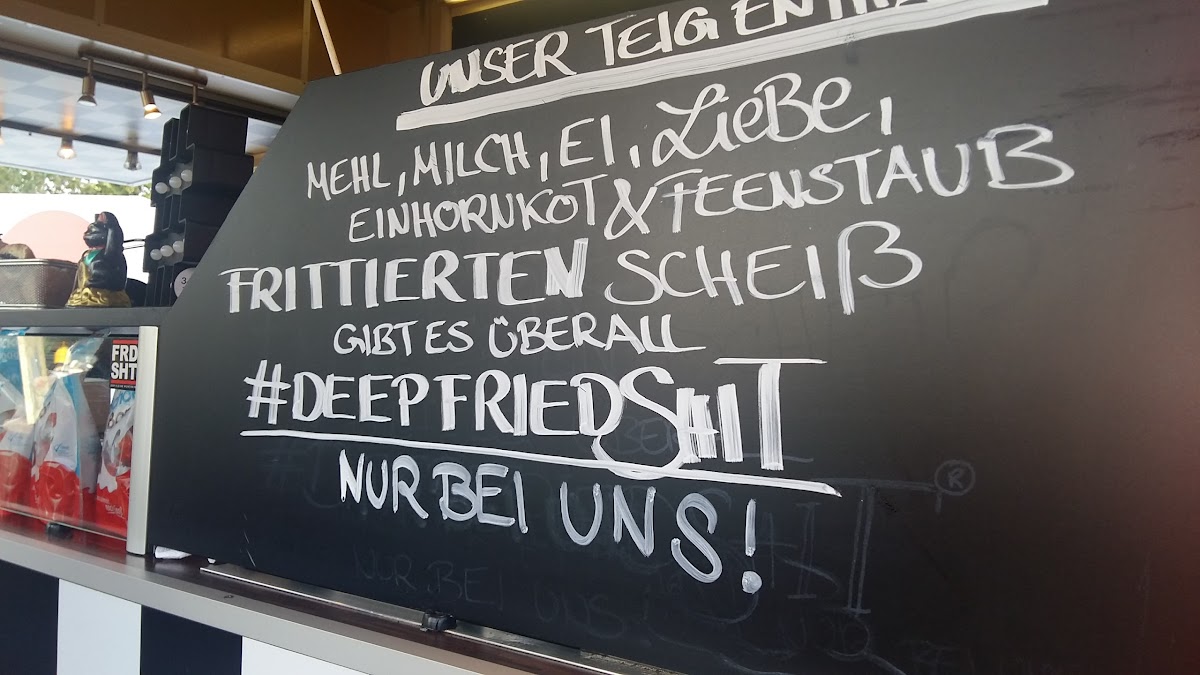 UNSER TEIG ENTHÄLT
MEHL, MILCH, EI, LIEBE,
EINHORNKOT & FEENSTAUB
FRITTIERTEN SCHEIß
GIBT ES ÜBERALL
#DEEPFRIEDSHIT
NUR BEI UNS!
®
NUR BEI UNS!
FRD
SHT
3